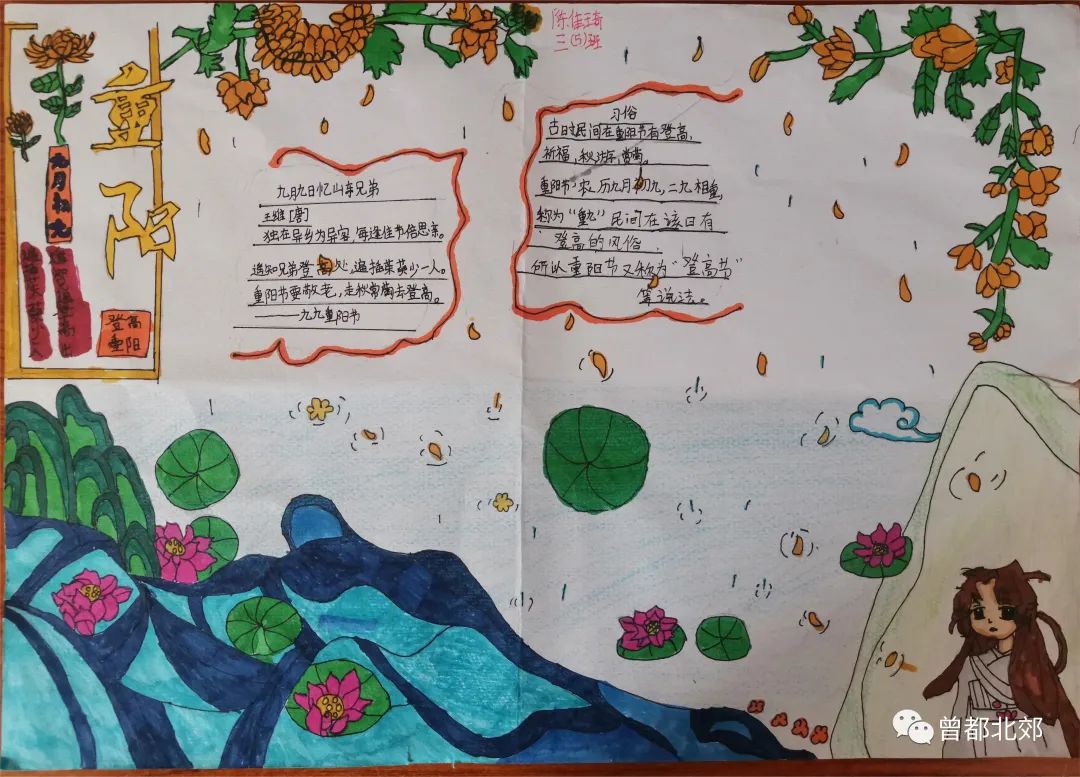 陈佳琦
三(5)班
重阳
九月初九
登高
重阳
九月九日忆山东兄弟
王维[唐]
独在异乡为异客，每逢佳节倍思亲。
遥知兄弟登高处，遍插茱萸少一人。
重阳节要敬老，走秋常 去登高。
——九九重阳节
习俗
古时民间在重阳节有登高，
祈福，秋游，赏菊。
重阳节，农历九月初九，二九相重，
称为“重九”民间在该日有
登高的风俗，
所以重阳节又称为“登高节”
等说法。
曾都北郊